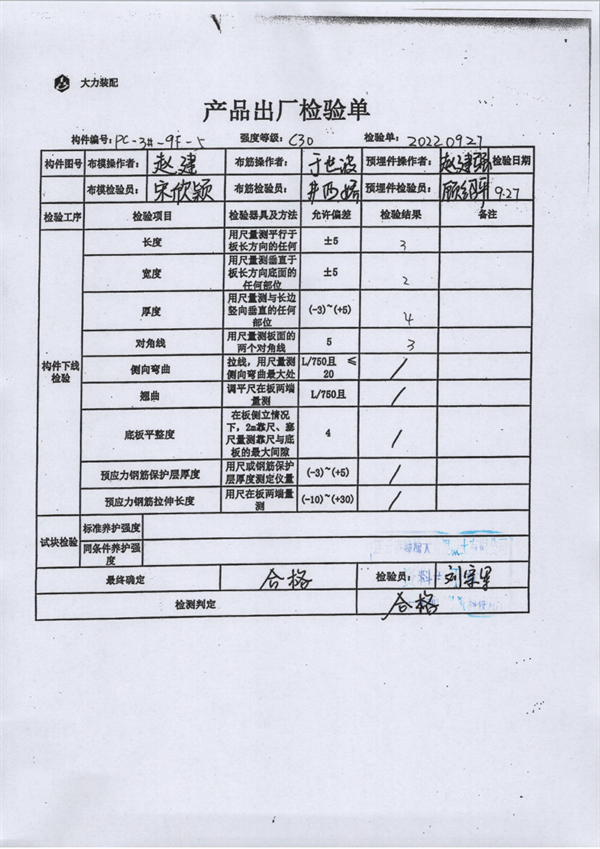 大力装配
产品出厂检验单
构件编号: PC-3#-9F-5 强度等级: C30 检验单: 20220927
构件图号 布模操作者: 赵建 布筋操作者: 于世波 预埋件操作者: 赵建强 检验日期
布模检验员: 宋欣颖 布筋检验员: 预埋件检验员: 9.27
检验工序 检验项目 检验器具及方法 允许偏差 检验结果 备注
构件下线检验
长度 用尺量测平行于板长方向的任何 ±5 3
宽度 用尺量测垂直于板长方向底面的任何部位 ±5 2
厚度 用尺量测与长边竖向垂直的任何部位 (-3)~(+5) 4
对角线 用尺量测板面的两个对角线 5 3
侧向弯曲 拉线，用尺量测侧向弯曲最大处 L/750且 ≤20 /
翘曲 调平尺在板两端量测 L/750且 /
底板平整度 在板侧立情况下，2m靠尺、塞尺量测靠尺与底板的最大间隙 4 /
预应力钢筋保护层厚度 用尺或钢筋保护层厚度测定仪量 (-3)~(+5) /
预应力钢筋拉伸长度 用尺在板两端量测 (-10)~(+30) /
试块检验 标准养护强度
同条件养护强度
最终确定 合格 检验员:
检测判定 合格